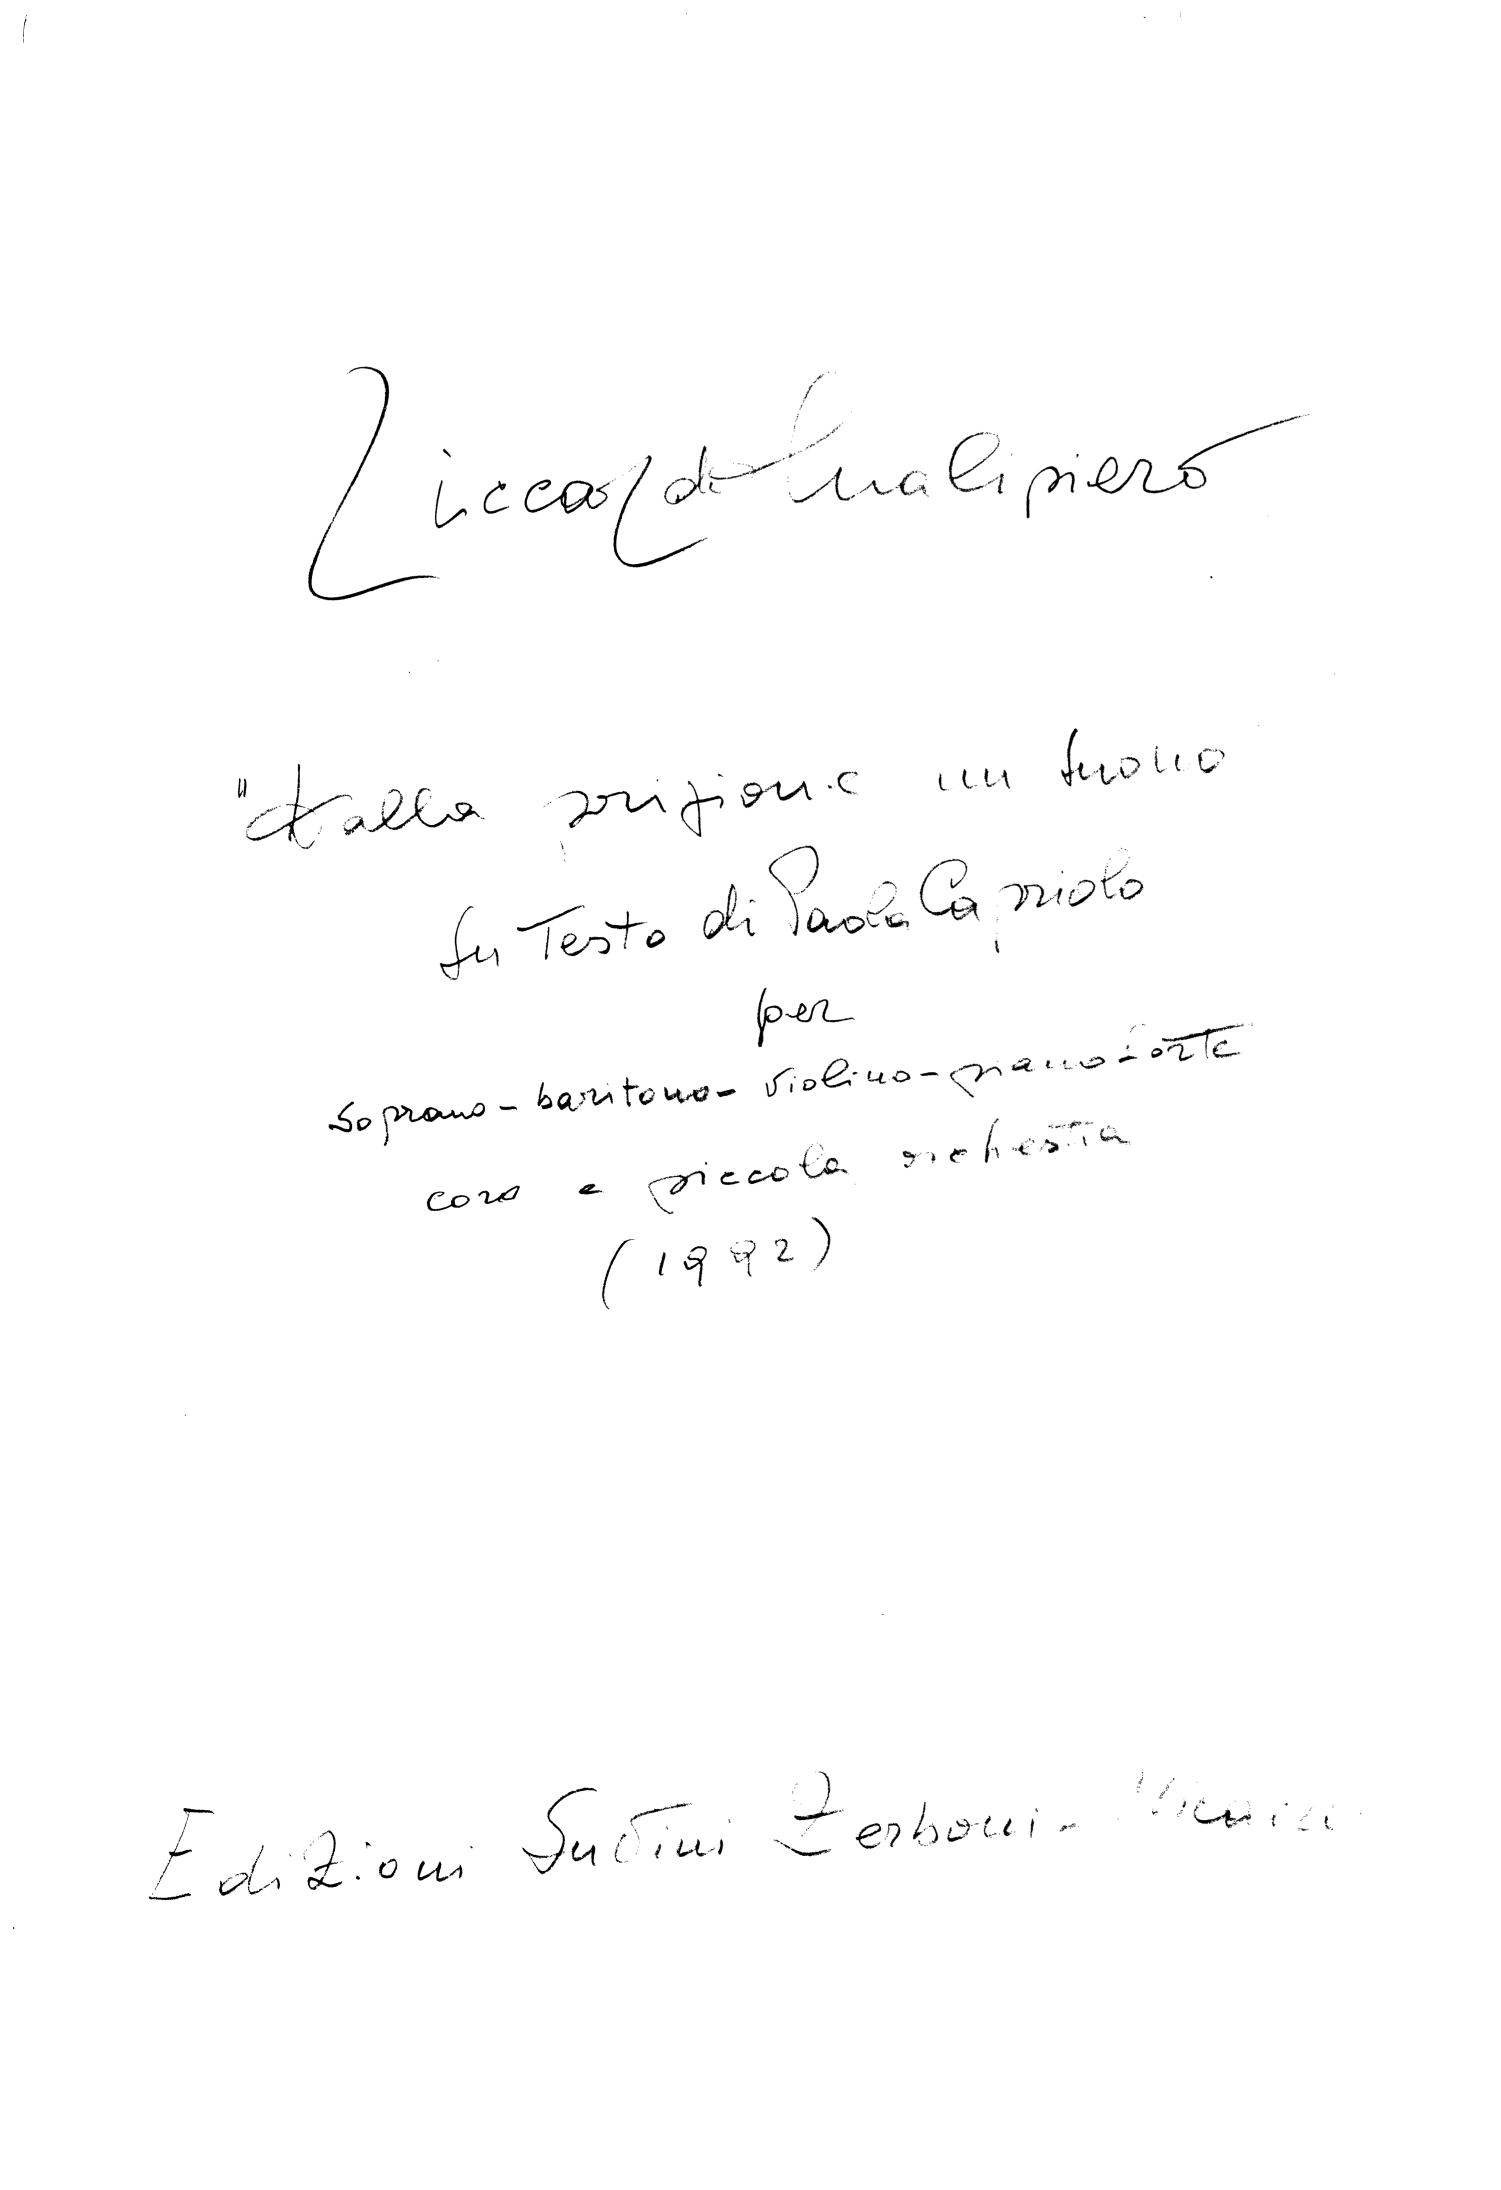 Riccardo Malipiero
"Dalla prigione un suono
Su Testo di Paola Capriolo
per
soprano - baritono - violino - pianoforte
coro e piccola orchestra
(1992)
Edizioni Suvini Zerboni - Milano